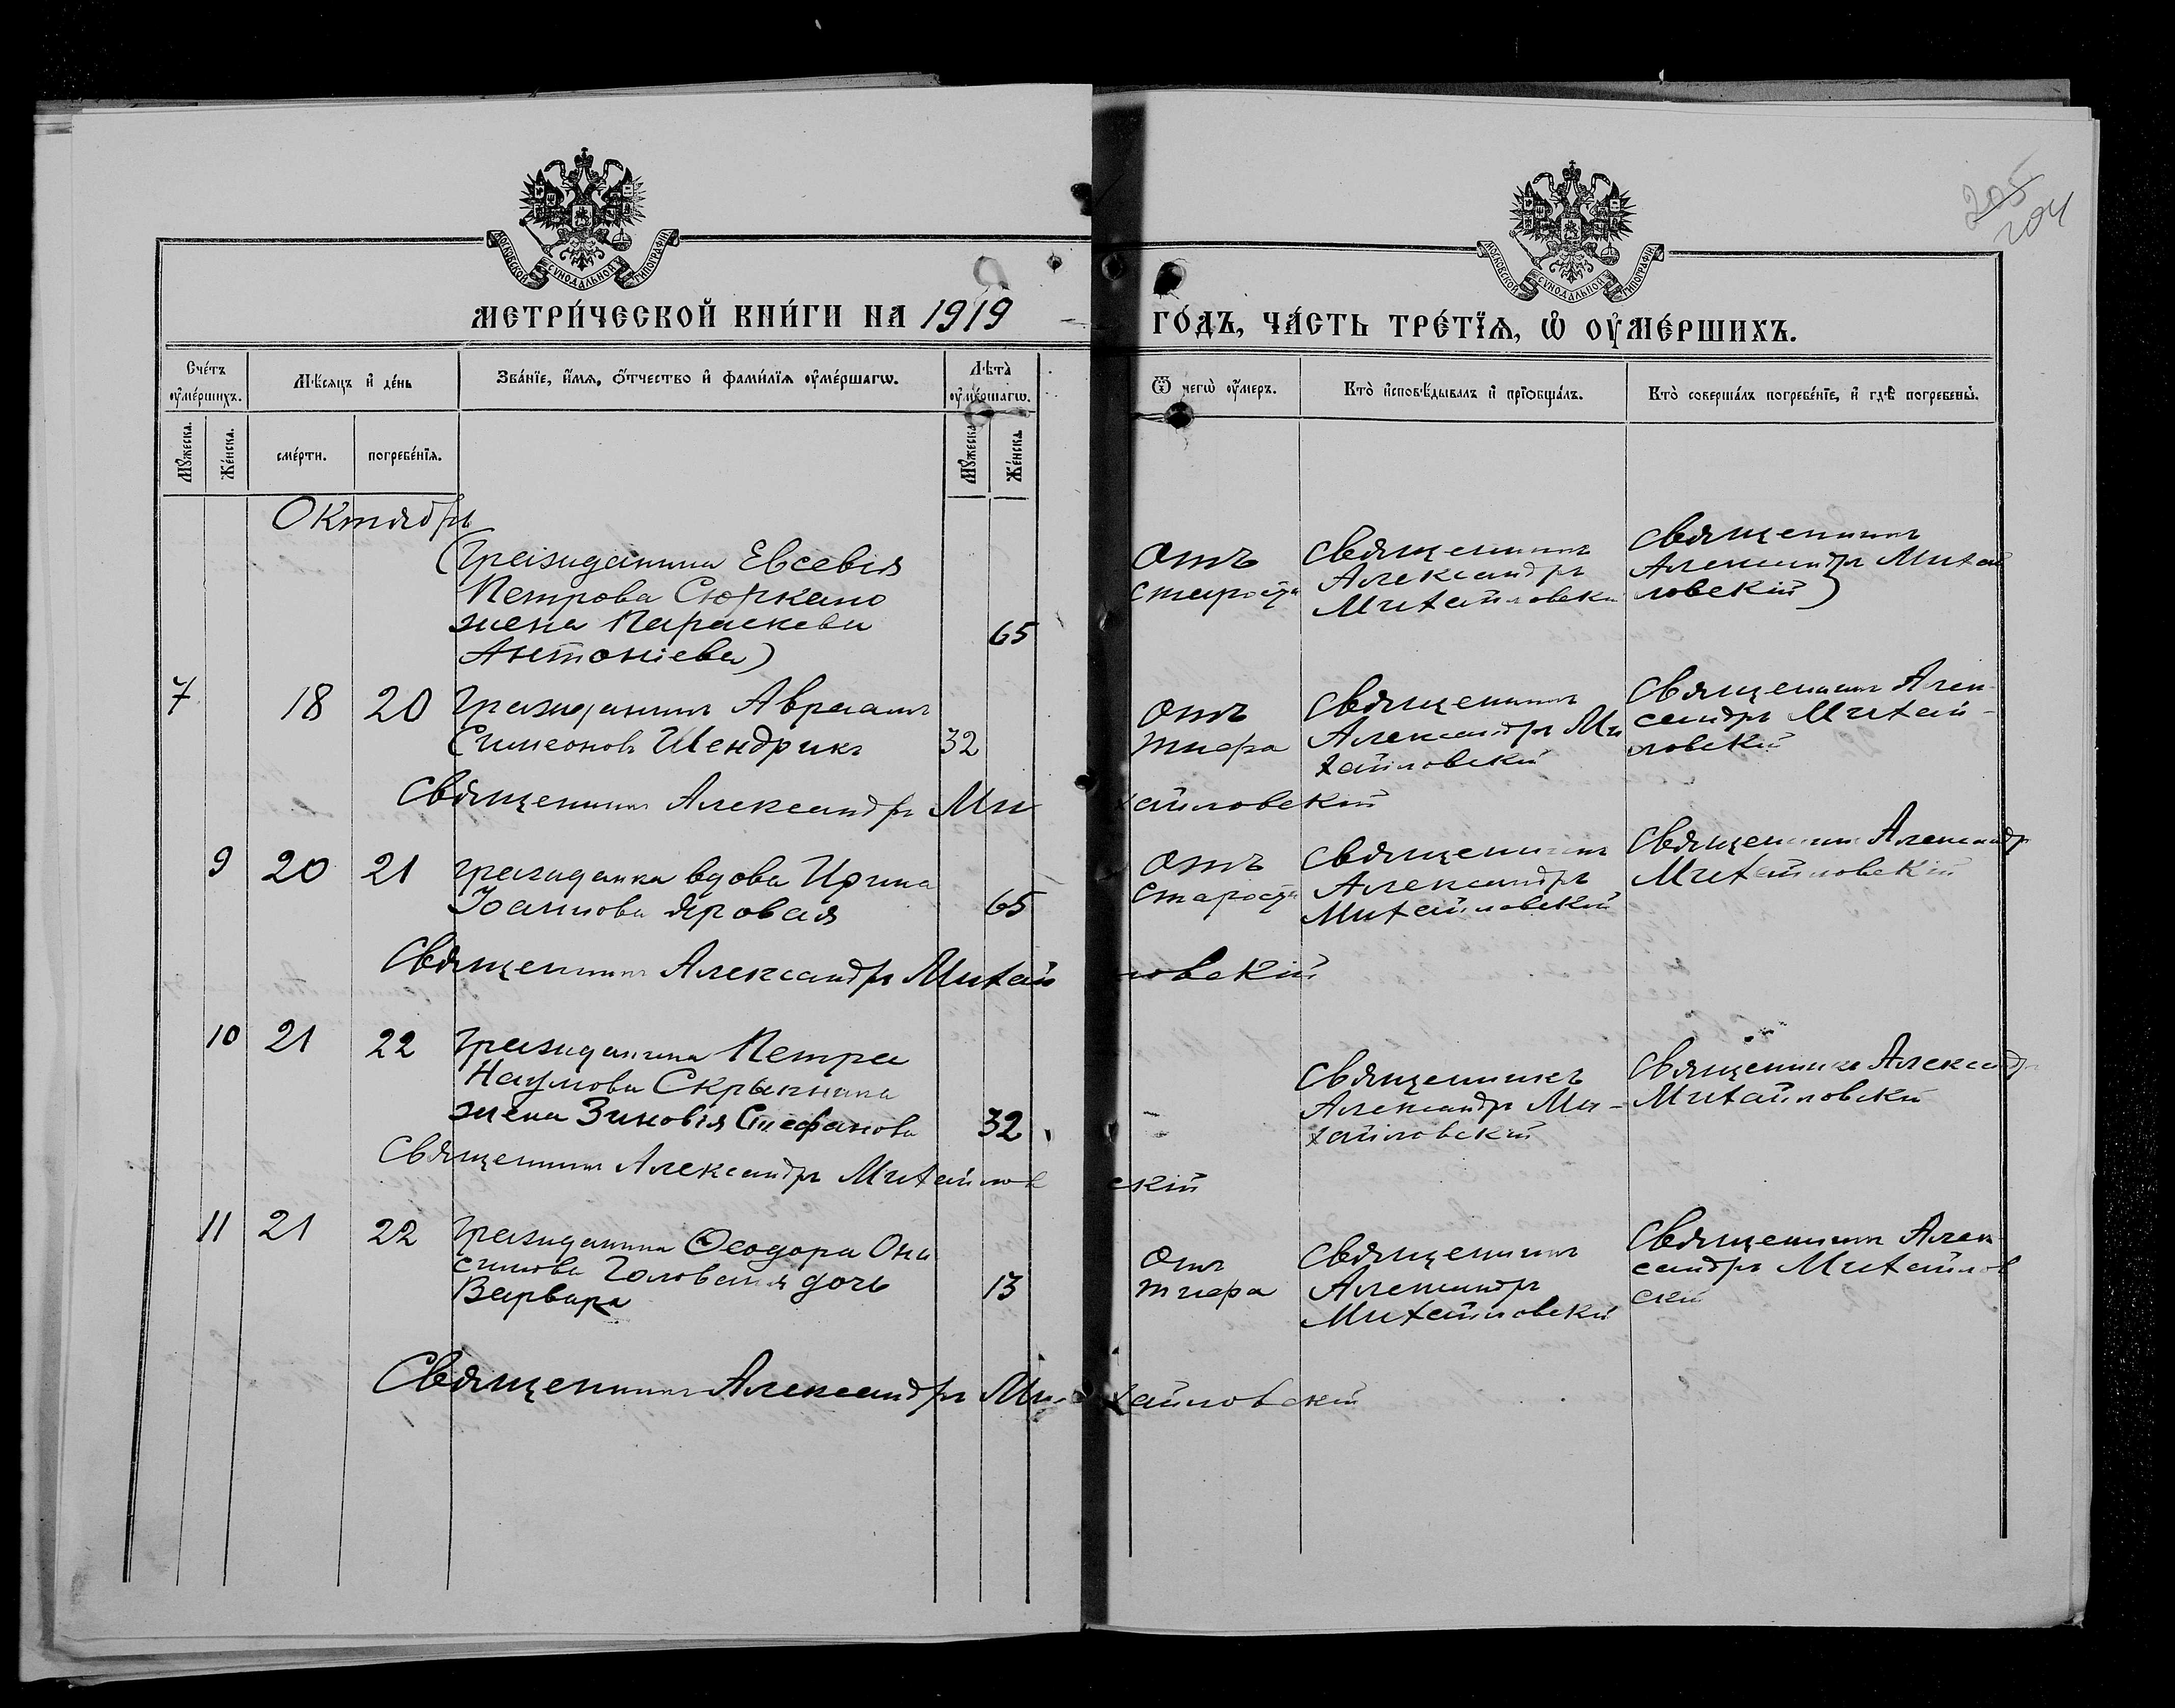 205
204
МОСКОВСКОЙ СѴНОДАЛЬНОЙ ТИПОГРАФІИ
МОСКОВСКОЙ СѴНОДАЛЬНОЙ ТИПОГРАФІИ
МЕТРИ́ЧЕСКОЙ КНИ́ГИ НА 1919
ГО́ДЪ, ЧА́СТЬ ТРЕ́ТЇѦ, Ѡ҆ ОУ҆МЕ́РШИХЪ.
Сче́тъ оу҆ме́ршихъ.
Мѣ́сяцъ и҆ де́нь
Зва́нїе, и҆́мѧ, ѻ҆́тчество и҆ фами́лїѧ оу҆ме́ршагѡ.
Лѣ̀та̀ оу҆ме́ршагѡ.
Ѿ чегѡ̀ оу҆́меръ.
Кто̀ и҆сповѣ́дывалъ и҆ прїѻбща́лъ.
Кто̀ соверша́лъ погребе́нїе, и҆ гдѣ̀ погребены̀.
Мꙋ́жеска.
Же́нска.
сме́рти.
погребе́нїѧ.
Мꙋ́жеска
Же́нска
Октябрь
(Гражданина Евсевія
Петрова Сюркало
жена Параскева 65
Антоніева)
Отъ
старости
Священникъ
Александръ
Михайловскій
Священникъ
Александръ Михай
ловскій)
7 18 20 Гражданинъ Авраамъ
Симеоновъ Шендрикъ 32
Отъ
тифа
Священникъ
Александръ Ми
хайловскій
Священникъ Алек-
сандръ Михай-
ловскій
Священникъ Александръ Михайловскій
9 20 21 Гражданка вдова Ирина
Іоаннова Яровая 65
Отъ
старости
Священникъ
Александръ
Михайловскій
Священникъ Александръ
Михайловскій
Священникъ Александръ Михайловскій
10 21 22 Гражданина Петра
Наумова Скрыпника
жена Зиновія Стефанова 32
-
Священникъ
Александръ Ми-
хайловскій
Священникъ Александръ
Михайловскій
Священникъ Александръ Михайловскій
11 21 22 Гражданина Ѳеодора Они
симова дочь 13
Варвара
Отъ
тифа
Священникъ
Александръ
Михайловскій
Священникъ Алек-
сандръ Михайлов
скій
Священникъ Александръ Михайловскій